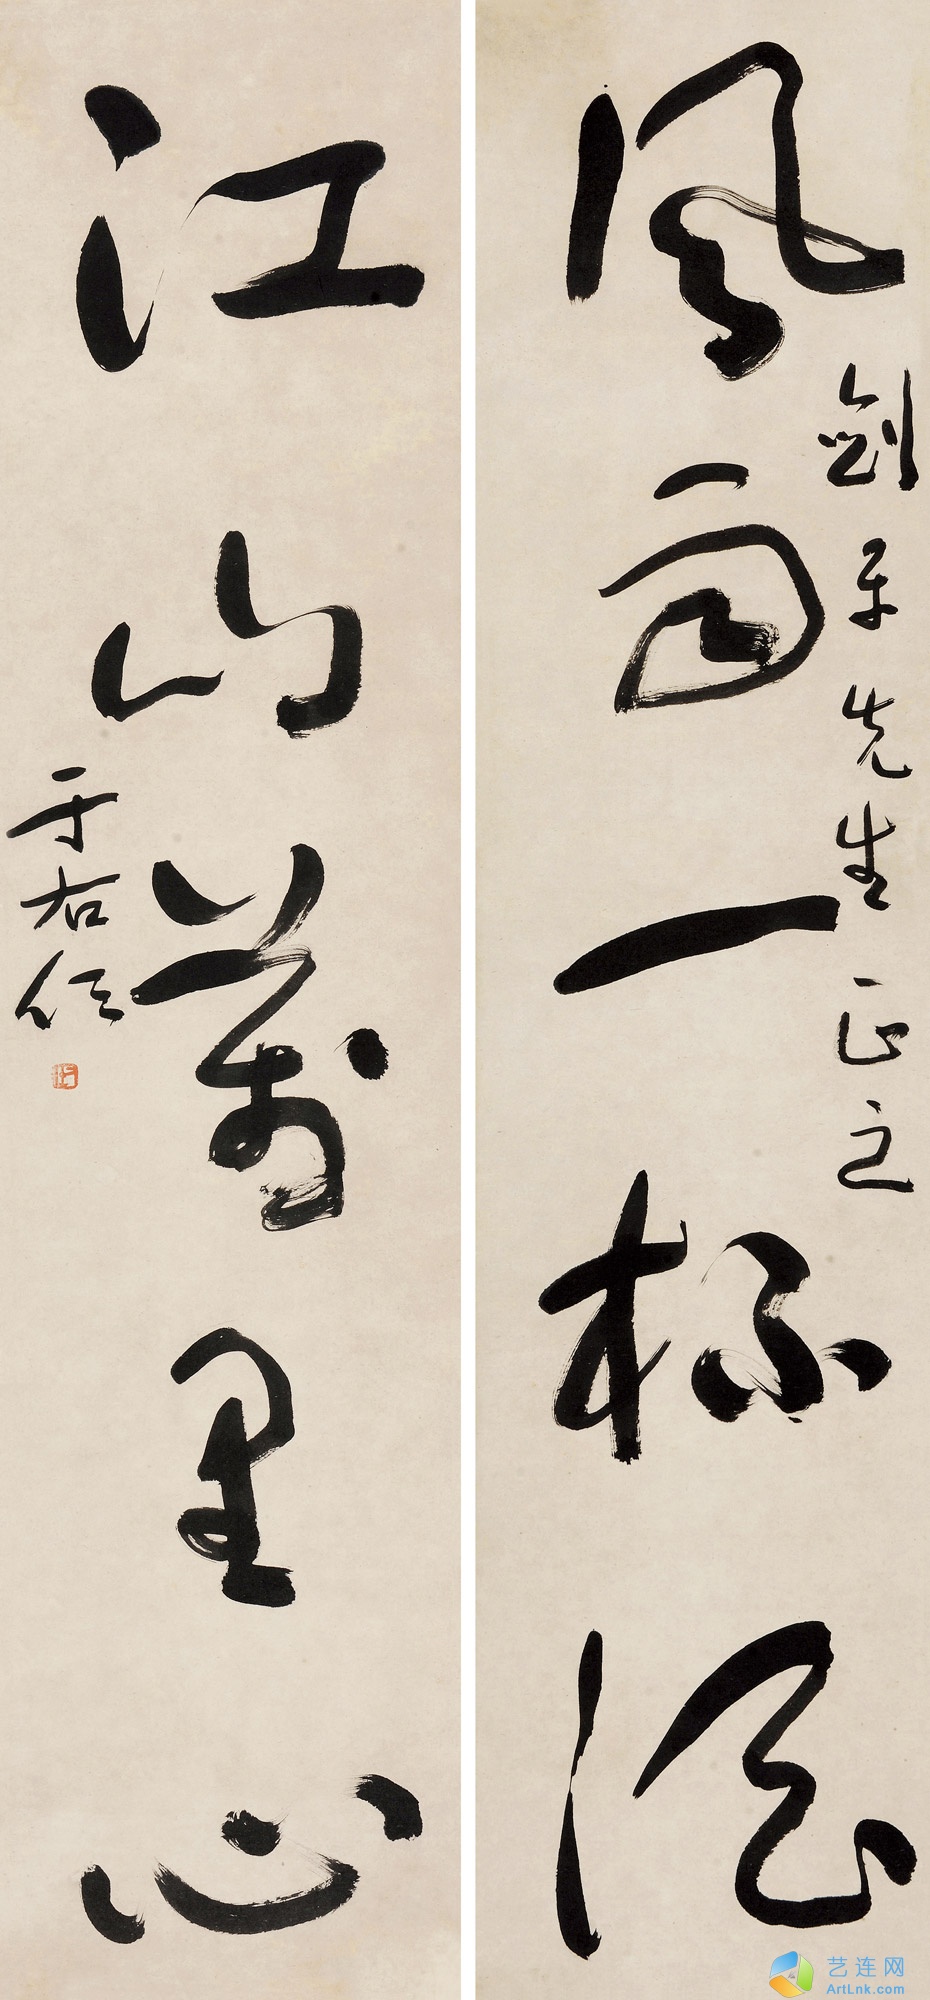 风雨一杯酒
剑平先生正之
江山萬里心
于右任
艺连网
ArtLnk.com